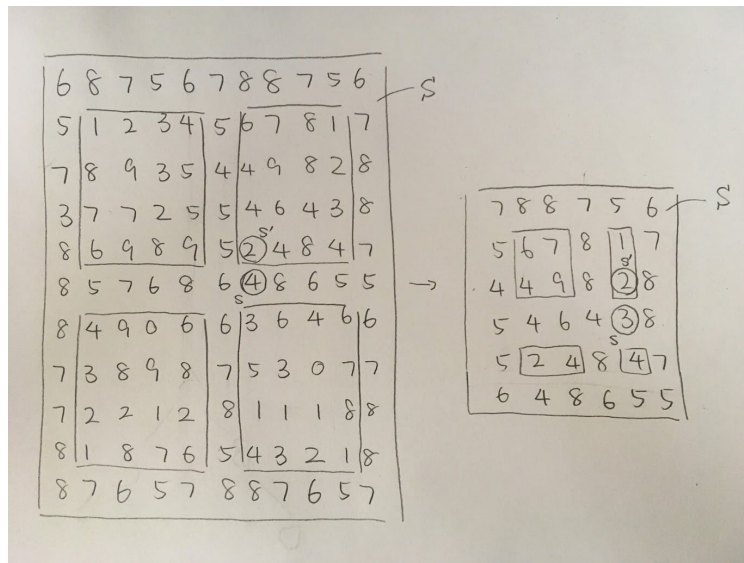 6 8 7 5 6 7 8 8 7 5 6
S
5 1 2 3 4 5 6 7 8 1 7
7 8 9 3 5 4 4 9 8 2 8
3 7 7 2 5 5 4 6 4 3 8
s'
8 6 9 8 9 5 2 4 8 4 7
8 5 7 6 8 6 4 8 6 5 5
s
8 4 9 0 6 6 3 6 4 6 6
7 3 8 9 8 7 5 3 0 7 7
7 2 2 1 2 8 1 1 1 8 8
8 1 8 7 6 5 4 3 2 1 8
8 7 6 5 7 8 8 7 6 5 7
→
7 8 8 7 5 6
S
5 6 7 8 1 7
s'
4 4 9 8 2 8
5 4 6 4 3 8
s
5 2 4 8 4 7
6 4 8 6 5 5